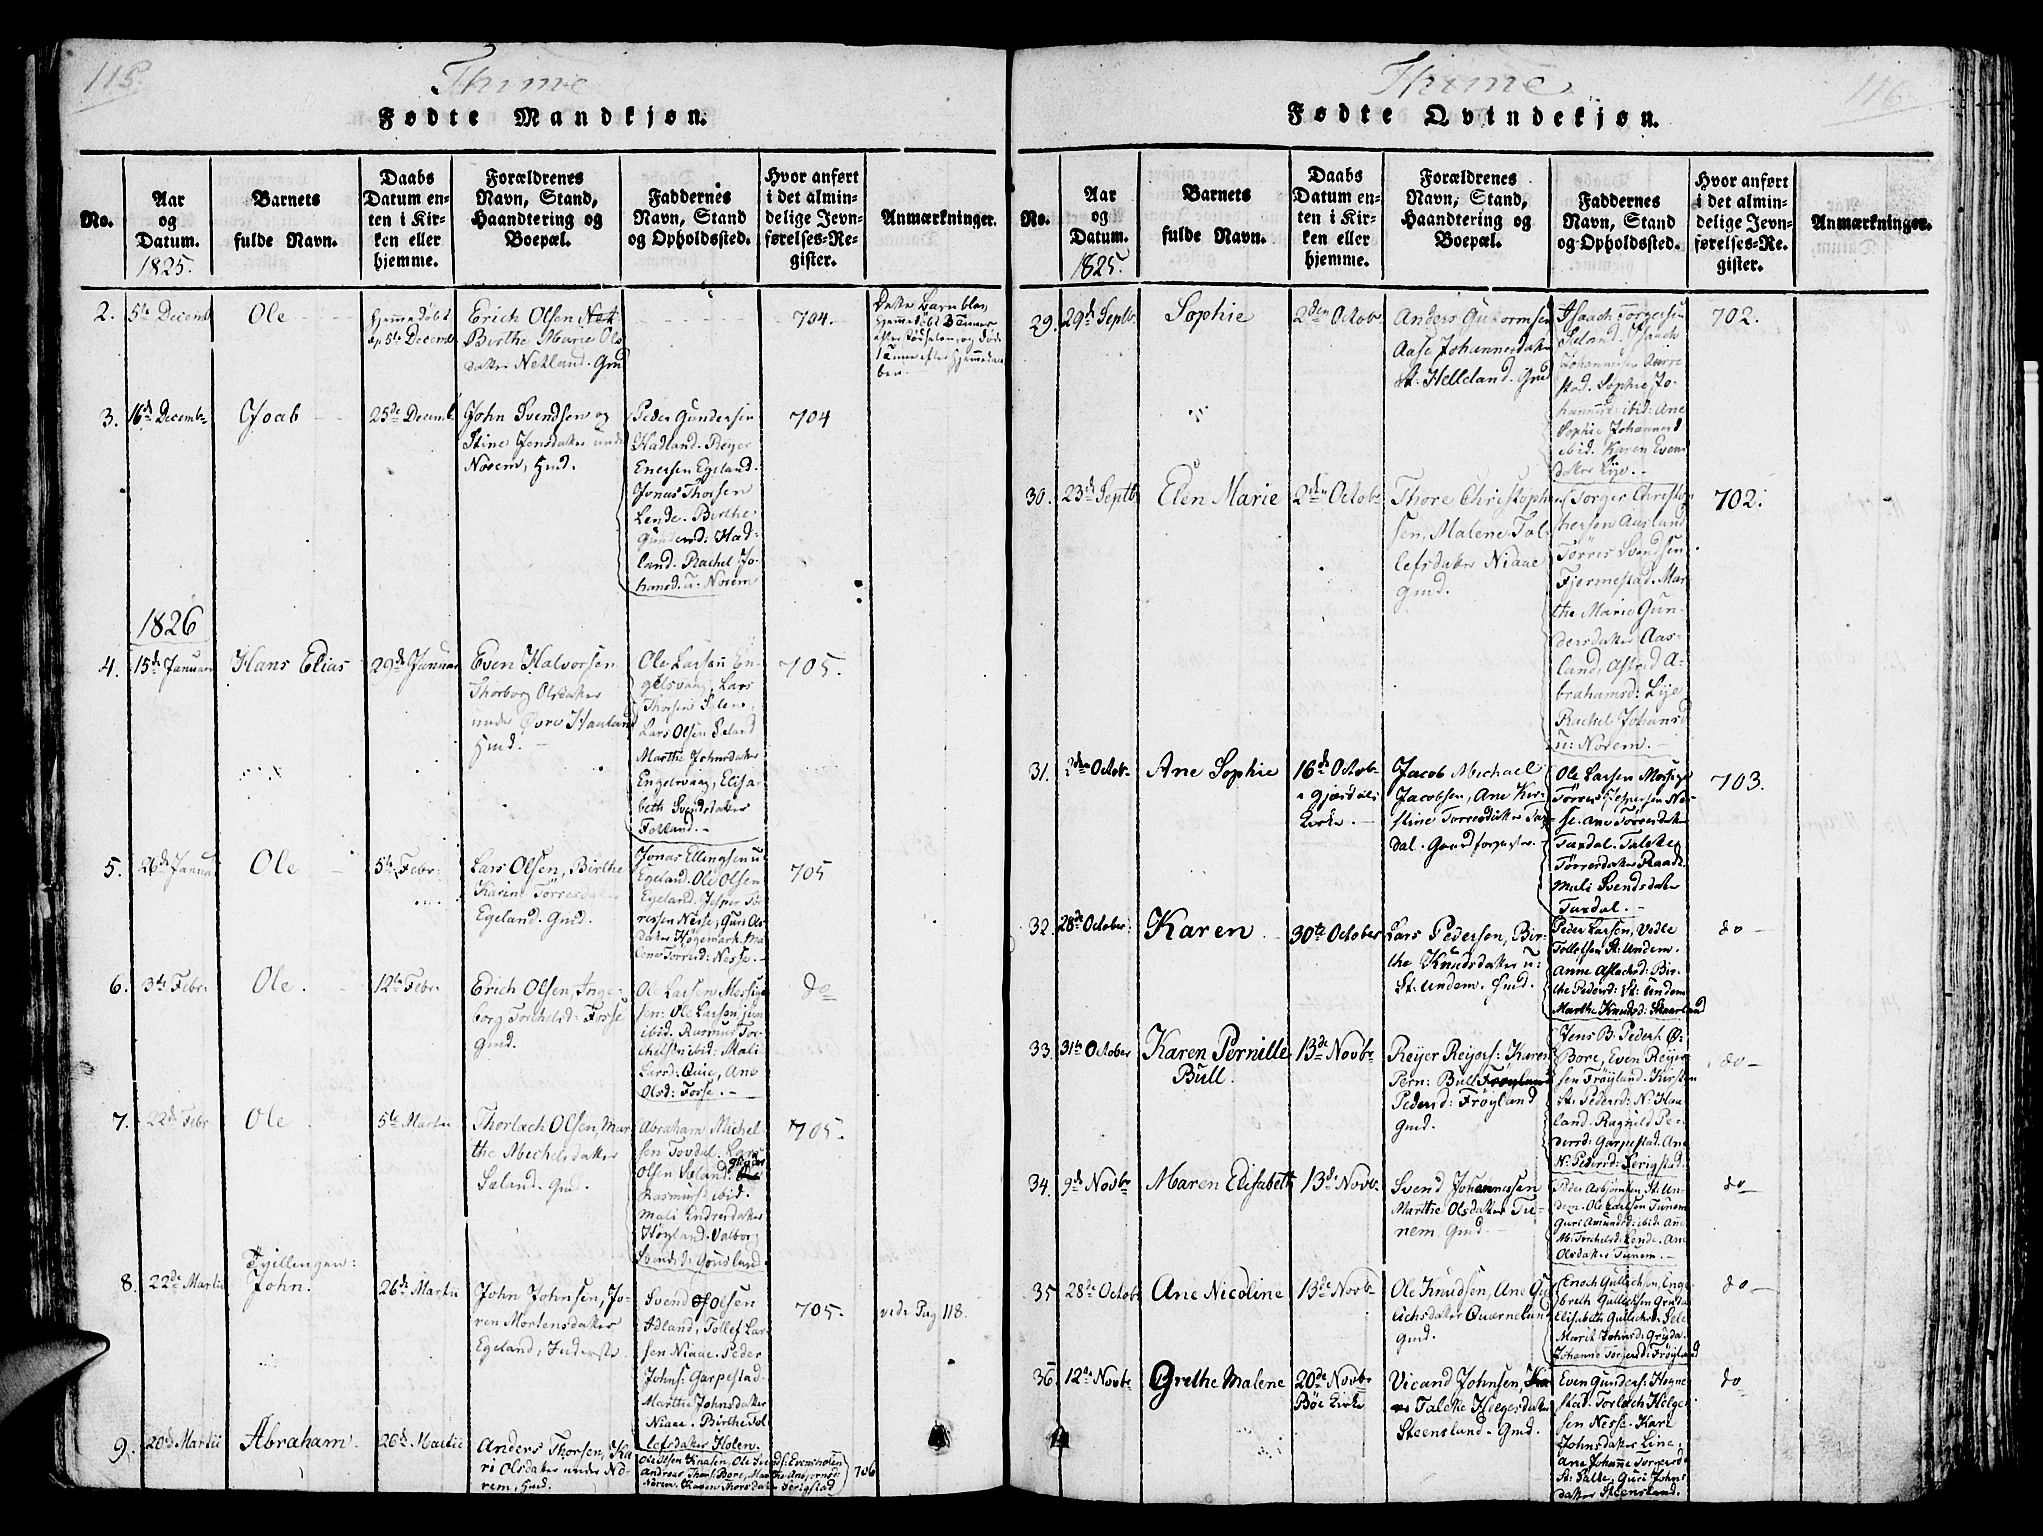 115.
Thime
Fødte Mandkjøn.
No.
Aar
og
Datum.
1825.
Barnets
fulde Navn.
Daabs
Datum en-
ten i Kir-
ken eller
hjemme.
Forældrenes
Navn, Stand,
Haandtering og
Boepæl.
Faddernes
Navn, Stand
og Opholdssted.
Hvor anført
i det almin-
delige Jevn-
førelses-Re-
gister.
Anmærkninger.
2.
5te Decemb
Ole
Hjemmedøbt
5te Decemb
Erich Olsen
Birthe Marie Ols
datter Netland. Gmd
704.
Dette Barn blev
hjemmedøbt 3 Timer
efter Fødselen, og døde
1 Time efter Hjemmedaa
ben.
3.
16de Decembr
Joab
25de Decemb
John Svendsen og
Stine Jensdatter unde
Norem, Hmd.
Peder Gundersen
Hadland. Reyer
Enersen Egeland.
Jonas Thorsen
Lende. Birthe
Gundersd: Had-
land. Rachel Jo-
hansd. u. Norem
704
1826
4.
15de Januar
Hans Elias
29de Januar
Even Halvorsen
Thorborg Olsdatter
under Øvre Haaland
Hmd.
Ole Larsen En-
gelsvaag, Lars
Thorsen Selen,
Lars Olsen Seland
Marthe Johnsdatter
Engelsvaag, Elisa-
beth Svendsdatter
Folland.
705.
5.
26de Januar
Ole
5te Febr:
Lars Olsen, Birthe
Karine Tørresdatter
Egeland. Gmd.
Jonas Ellingsen u
Egeland. Ole Olsen
Egeland. Jesper Tør
resen Nesse, Guri Ols
datter Høgemark. Ma
lene Torresd: Nesse.
705
6.
3de Febr:
Ole.
12te Febr
Erich Olsen, Inge-
borg Torchelsd: Forse
Gmd.
Ole Larsen Mossige
sen: Ole Larsen jun
ibid. Rasmus Tor-
chelsen ibid: Mali
Larsd: Quie, Ane
Olsd: Forse.
do
7.
22de Febr
Ole
5te Martii
Thorlach Olsen, Mar
the Mechelsdatter
Sæland. Gmd.
Abraham Michel
sen Tovdal. Lars
Olsen Seland.
Rasmus ibid.
Mali Endresdatter
Høyland. Valborg
Svendsd: Gousland.
705.
8.
22de Martii
Tvillingen:
John.
26de Martii
John Johnsen, Jo-
ren Mortensdatter
Egeland, Inderste
Svend Olsen
Adland, Tollef Lar-
sen Niaae. Peder
Johns: Garpestad.
Marthe Johnsdatter
Niaae. Birthe Tol
lefsdatter Holen.
705.
vide Pag 118.
9.
20de Martii
Abraham.
26de Martii
Anders Thorsen, Ka
ri Olsdatter under No
rem, Hmd.
Ole Olsen Knasen, Ole Svends: Evensholen
Andreas Thors: Bore, Marthe
Norem. Karen Thorsdatter Serigstad
706
116.
Thime
Fødte Qvindekjøn.
No.
Aar
og
Datum.
1825.
Barnets
fulde Navn.
Daabs
Datum en-
ten i Kir-
ken eller
hjemme.
Forældrenes
Navn, Stand,
Haandtering og
Boepæl.
Faddernes
Navn, Stand
og Opholdssted.
Hvor anført
i det almin-
delige Jevn-
førelses-Re-
gister.
Anmærkninger.
29.
29de Septb
Sophie
2den Octob
Anders Guttormsen
Aase Johannesdatter
St: Helleland. Gmd
Isaach Torgersen
Seland. Isaach
Johannesen Aarre
stad. Sophie Jo-
hannesd: ibid: Ane
Sophie Johannesd
ibid. Karen Evens
datter Lye.
702.
30.
23de Septb
Elen Marie
2den Octob
Thore Christopher
sen, Malene Tol-
lefsdatter Niaae
Gmd.
Torger Christop
hersen Aasland
Tørres Svendsen
Fjermestad. Mar-
the Marie Gun-
dersdatter Aas-
land, Astrid A-
brahamsd: Lye
Rachel Johansd
u: Norem.
702.
31.
2den Octob
Ane Sophie
16de Octob
i Gjesdals
Kirke.
Jacob Mechael
Jacobsen, Ane Kir-
stine Torresdatter Tax
dal. Gaardforpagter.
Ole Larsen Mossige
Tørres Jespersen Nes-
se. Ane Tørresdatter
Taxdal. Taleke
Tørresdatter Raad.
Mali Svendsdatter
Taxdal.
703.
32.
28de October:
Karen
30te October
Lars Pedersen, Bir-
the Knudsdatter u:
St: Undem. Hmd.
Peder Larsen, Vedle
Tollefsen St. Undem.
Anne Aslachsd: Bir-
the Pedersd: St: Undem
Marthe Knudsd: Skaarland
do
33.
31te October
Karen Pernille
Bull.
13de Novbr
Reyer Reyers: Karen
Pern: Bull
Pedersd: Frøyland
Gmd.
Jens B. Peders. Ø:
Bore, Even Reyer
sen Frøyland. Kirsten
St. Pedersd: N: Haa
land. Ragnild Pe-
dersd: Garpestad. Ane
N: Pedersd: Serigstad.
do
34.
9de Novbr
Maren Elisabeth
13de Novb.
Svend Johannessen
Marthe Olsdatter Tu-
nem, Gmd
Peder Asbjørnsen St. Un-
dem. Ole Larsen Tunem
Guri Amundsd: ibid. Ane
M: Torchelsd: Lende. Ane
Olsdatter Tunem.
do
35
28de Octob
Ane Nicoline
13de Novb
Ole Knudsen, Ane Gul
lichsdatter Quærnelund
Gmd.
Enoch Gullichsen, Enge
breth Gullichsen Gruda
Elisabeth Gullichsd: Sele
Marit Johnsd: Gruda.
Johanne Torgersd: Frøyland
do
36.
12te Novbr
Grethe Malene
20de Novbr
Bøe Kirke
Vicand Johnsen,
Taleke Helgesdatter
Steensland. Gmd.
Even Gunders: Hogne
stad. Torlach Helge
sen Nesse. Kari
Johnsdatter Line,
Ane Johanne Torgersd
St: Salte, Guri Johns
datter Steensland.
do